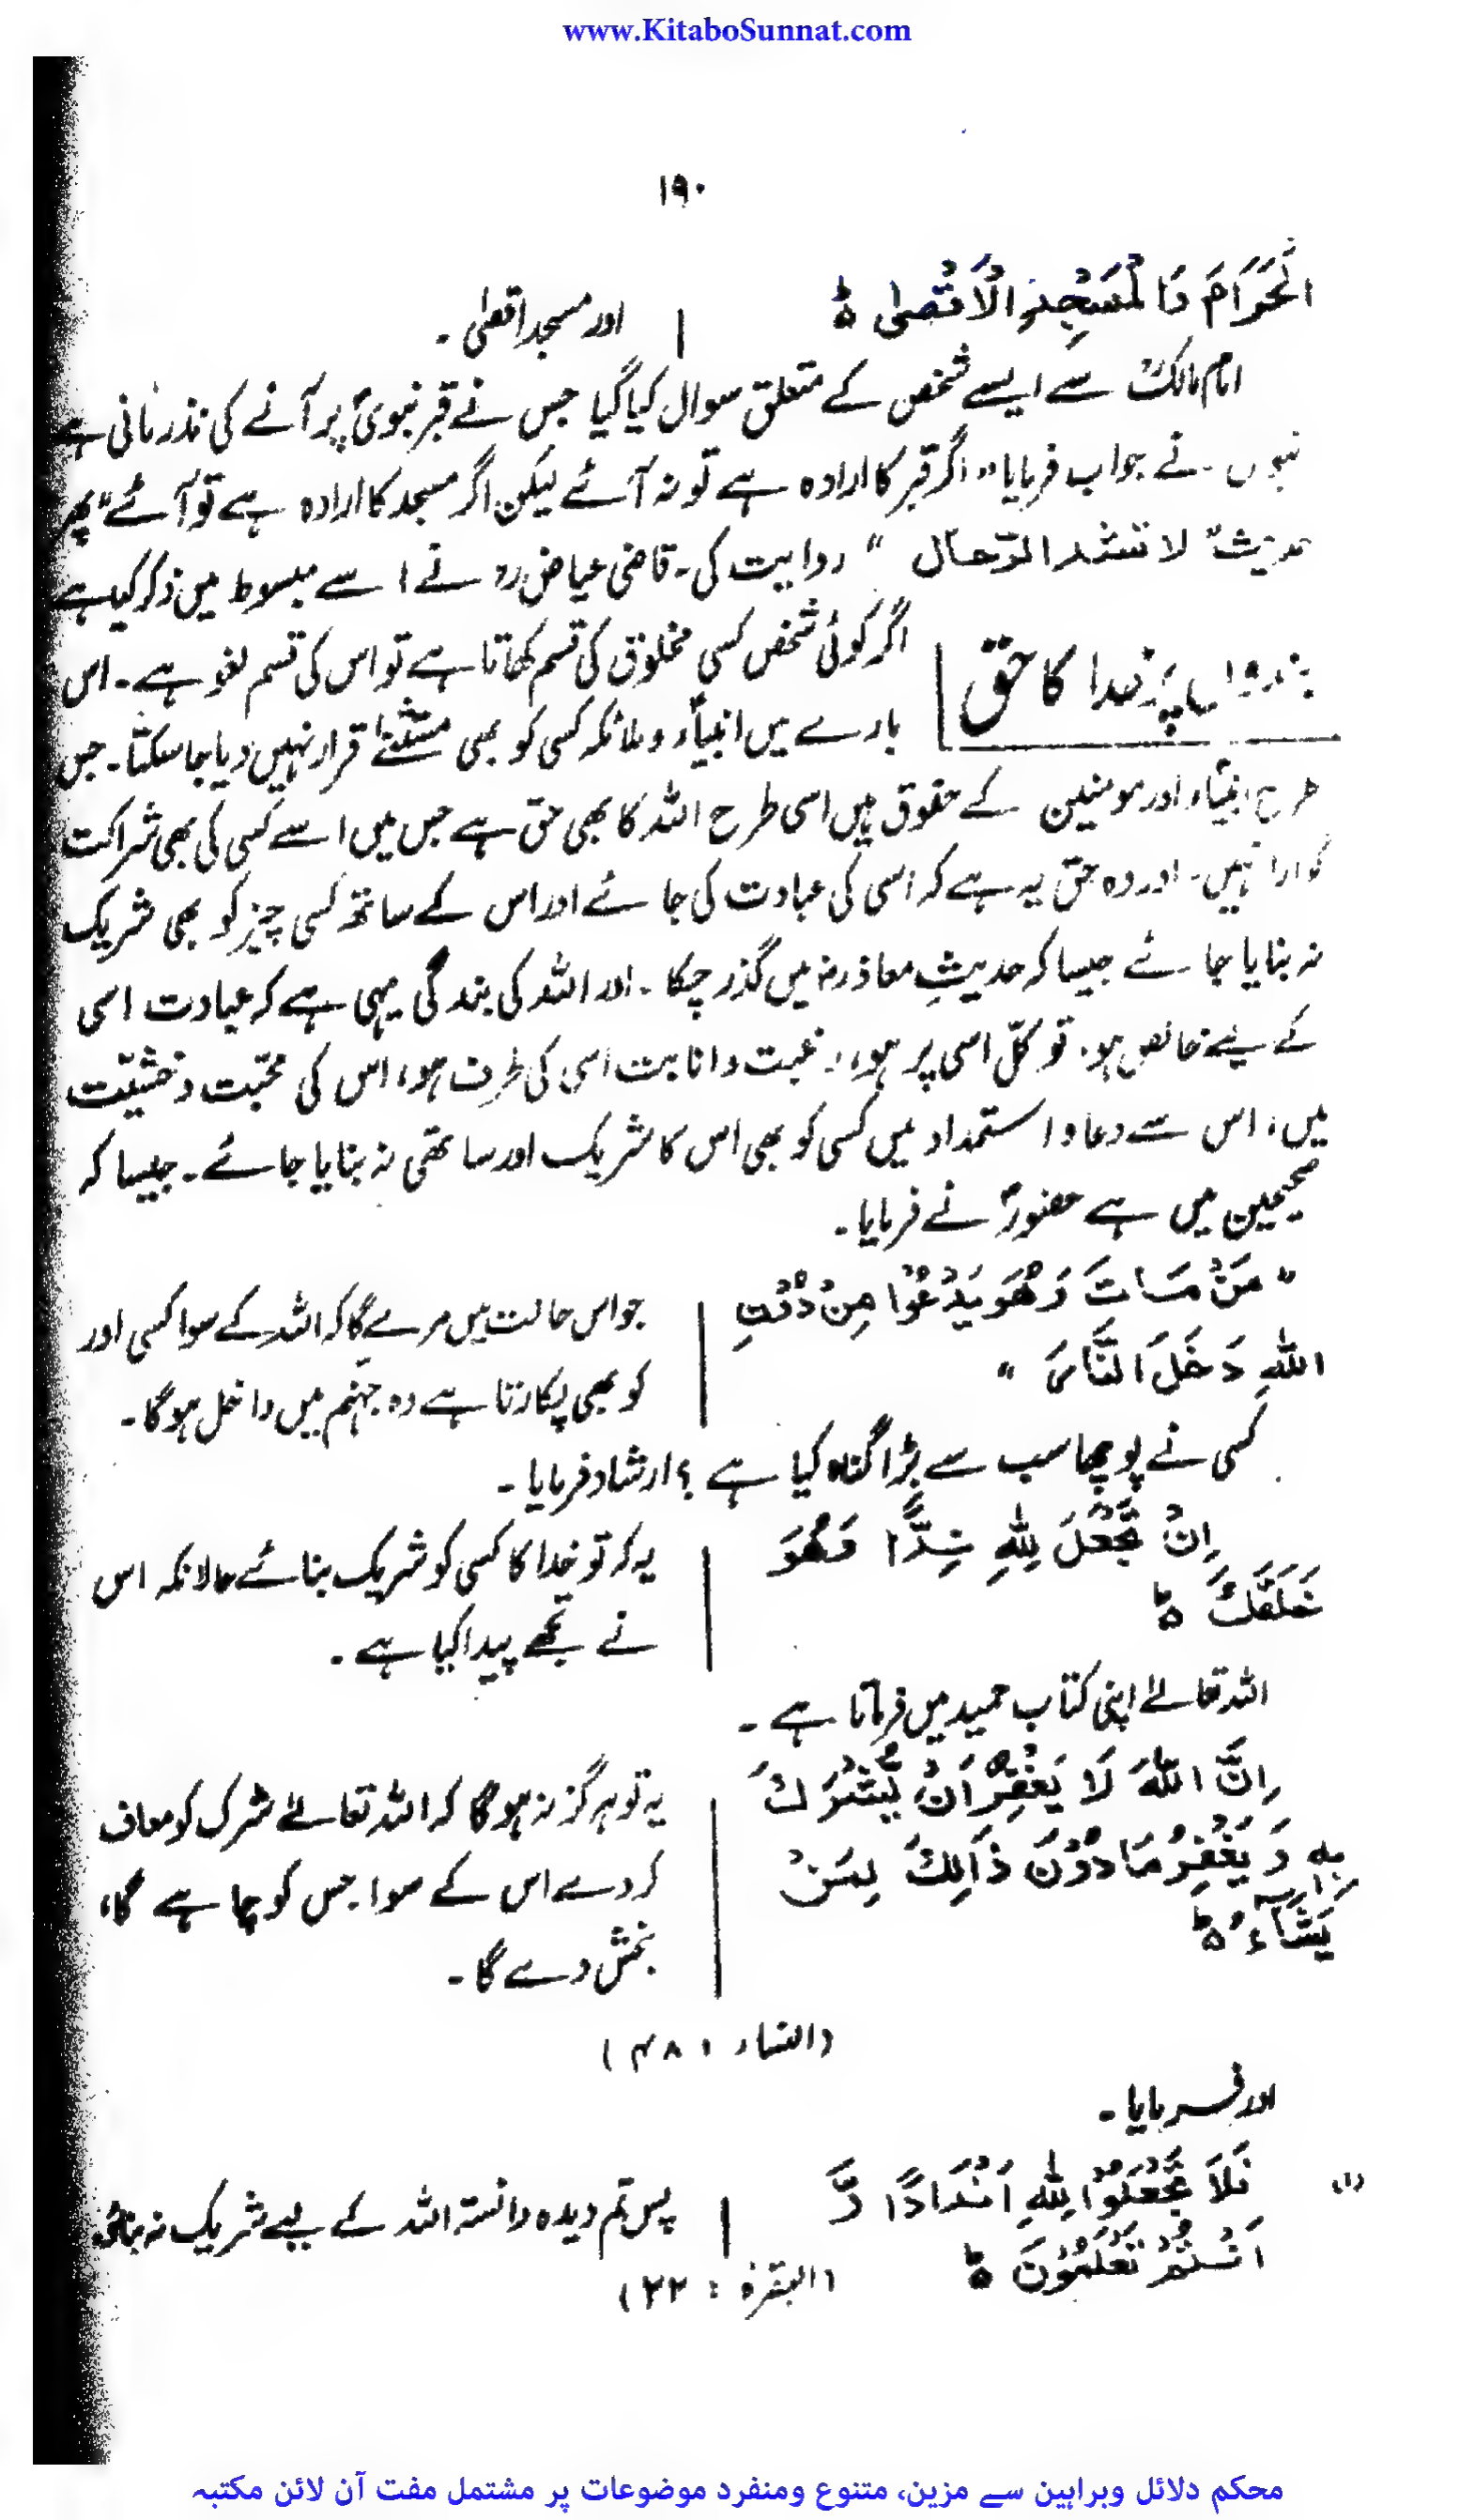 www.KitaboSunnat.com
۱۹۰
الْحَرَامَ وَالْمَسْجِدِ الْاَقْصٰى ط
اور مسجد اقصٰی ۔
امام مالکؒ سے ایسے شخص کے متعلق سوال کیا گیا جس نے قبر نبویؐ پر آنے کی نذر مانی ہے
نے جواب فرمایا " اگر قبر کا ارادہ ہے تو نہ آئے لیکن اگر مسجد کا ارادہ ہے تو آئے " پھر
حدیث " لا تشد الرّحال " روایت کی ۔ قاضی عیاض رح نے اسے مبسوط میں ذکر کیا ہے
بندوں پر خدا کا حق
اگر کوئی شخص کسی مخلوق کی قسم کھاتا ہے تو اس کی قسم لغو ہے ۔ اس
بارے میں انبیاءؑ و ملائکہ کسی کو بھی مستثنٰے قرار نہیں دیا جا سکتا ۔ جس
طرح انبیاءؑ اور مومنین کے حقوق ہیں اسی طرح اللہ کا بھی حق ہے جس میں اسے کسی کی بھی شراکت
گوارا نہیں ۔ اور وہ حق یہ ہے کہ اسی کی عبادت کی جائے اور اس کے ساتھ کسی چیز کو بھی شریک
نہ بنایا جائے جیسا کہ حدیثِ معاذ رض میں گذر چکا ۔ اور اللہ کی بندگی یہی ہے کہ عبادت اسی
کے لیے خالص ہو ، توکّل اسی پر ہو ، رغبت و انابت اسی کی طرف ہو ، اس کی محبت و خشیّت
میں ، اس سے دعا و استمداد میں کسی کو بھی اس کا شریک اور ساتھی نہ بنایا جائے ۔ جیسا کہ
صحیحین میں ہے حضورؐ نے فرمایا ۔
" مَنْ مَاتَ وَهُوَ يَدْعُوْا مِنْ دُوْنِ
اللهِ دَخَلَ النَّارَ "
جو اس حالت میں مرے گا کہ اللہ کے سوا کسی اور
کو بھی پکارتا ہے وہ جہنم میں داخل ہو گا ۔
کسی نے پوچھا سب سے بڑا گناہ کیا ہے ؟ ارشاد فرمایا ۔
اِنْ تَجْعَلَ لِلّٰهِ نِدًّا وَهُوَ
خَلَقَكَ ط
یہ کہ تو خدا کا کسی کو شریک بنائے حالانکہ اس
نے تجھے پیدا کیا ہے ۔
اللہ تعالےٰ اپنی کتاب حمید میں فرماتا ہے ۔
اِنَّ اللهَ لَا يَغْفِرُ اَنْ يُّشْرَكَ
بِهٖ وَ يَغْفِرُ مَا دُوْنَ ذَالِكَ لِمَنْ
يَشَآءُ ط
یہ تو ہرگز نہ ہو گا کہ اللہ تعالےٰ شرک کو معاف
کر دے اس کے سوا جس کو چاہے گا ،
بخش دے گا ۔
(النساء ، ۴۸)
اور فرمایا ۔
(۱) فَلَا تَجْعَلُوْا لِلّٰهِ اَنْدَادًا وَّ
اَنْتُمْ تَعْلَمُوْنَ ط
پس تم دیدہ دانستہ اللہ کے لیے شریک نہ بناؤ ۔
(البقرہ : ۲۲)
محکم دلائل وبراہین سے مزین، متنوع ومنفرد موضوعات پر مشتمل مفت آن لائن مکتبہ